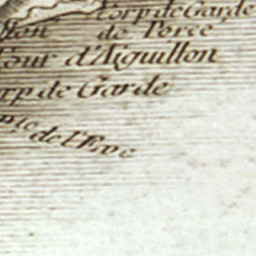 Corp de Garde
de Porce
Tour d'Aiguillon
de Garde
de l'Eve